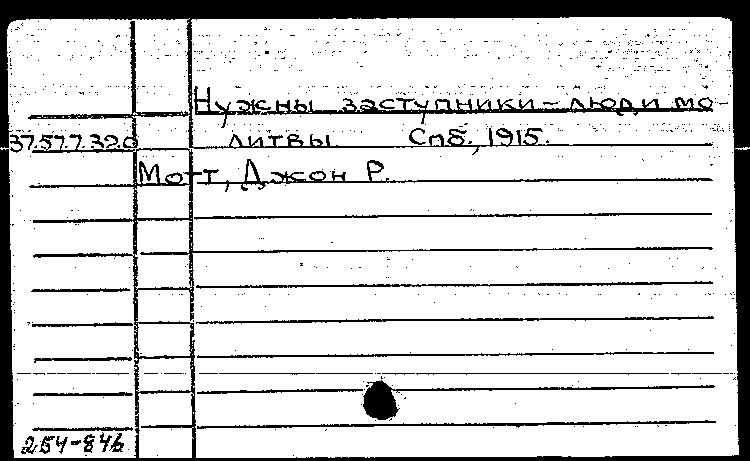 Нужны заступники – люди мо-
37.57.7.320 литвы Спб., 1915.
Мотт, Джон Р.
254-846